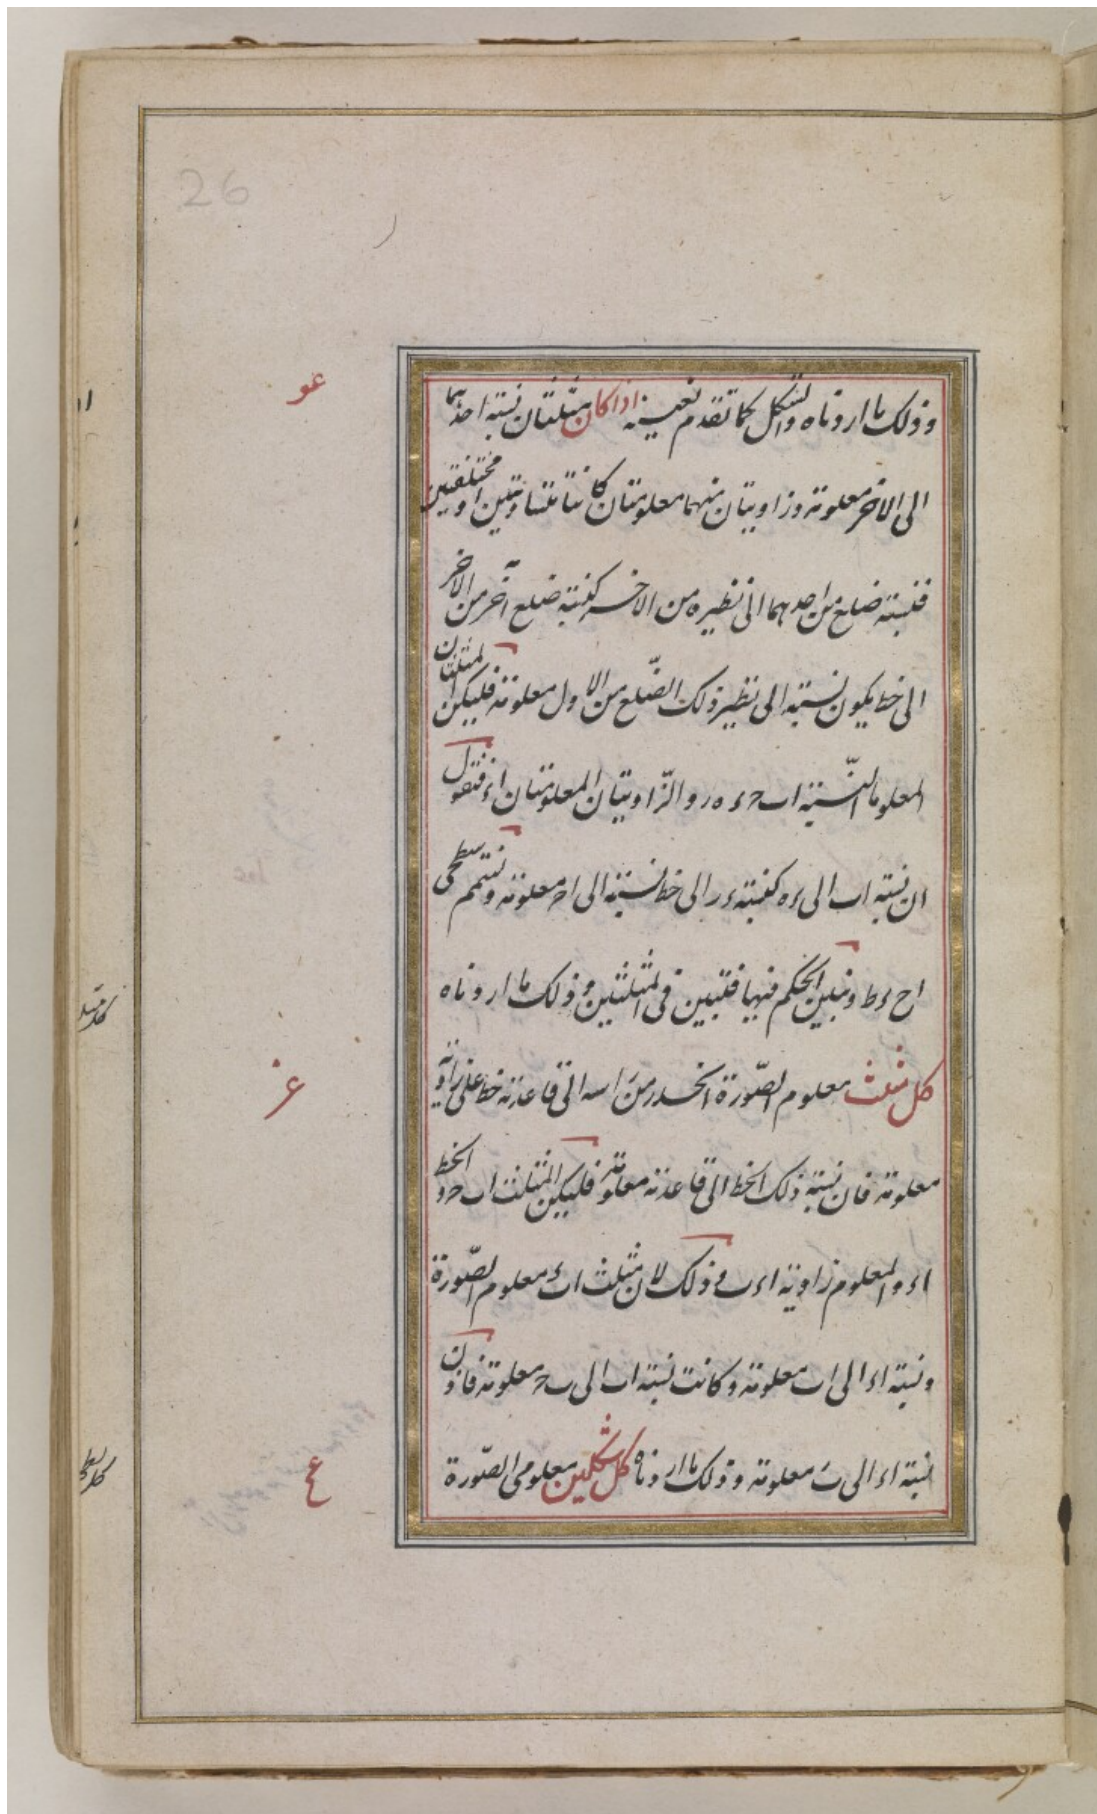 26
عو
وذلك ما اردناه والشكل كما تقدم بعينه اذا كان مثلثان نسبة احدهما
الى الاخر معلومة وزاويتان منهما معلومتان كانتا متساويتين او مختلفتين
فنسبة ضلع من احدهما الى نظيره من الاخر كنسبة ضلع آخر من الاخر
الى خط يكون نسبته الى نظير ذلك الضلع من الاول معلومة فليكن المثلثان
المعلوما النسبة اب ح ء ه ر والزاويتان المعلومتان اء فنقول
ان نسبة اب الى ء ه كنسبة ء ر الى خط نسبته الى اح معلومة ونتمم سطحى
اح ء ط ونبين الحكم فيها فتبين فى المثلثين وذلك ما اردناه
غر
كل مثلث معلوم الصورة انحدر من راسه الى قاعدته خط على زاوية
معلومة فان نسبة ذلك الخط الى قاعدته معلومة فليكن المثلث اب ح والخط
اء والمعلوم زاوية اء ب وذلك لان مثلث اب ء معلوم الصورة
ونسبة اء الى اب معلومة وكانت نسبة اب الى ب ح معلومة فاذن
نسبة اء الى ب ح معلومة وذلك ما اردناه كل شكلين معلومى الصورة
عح